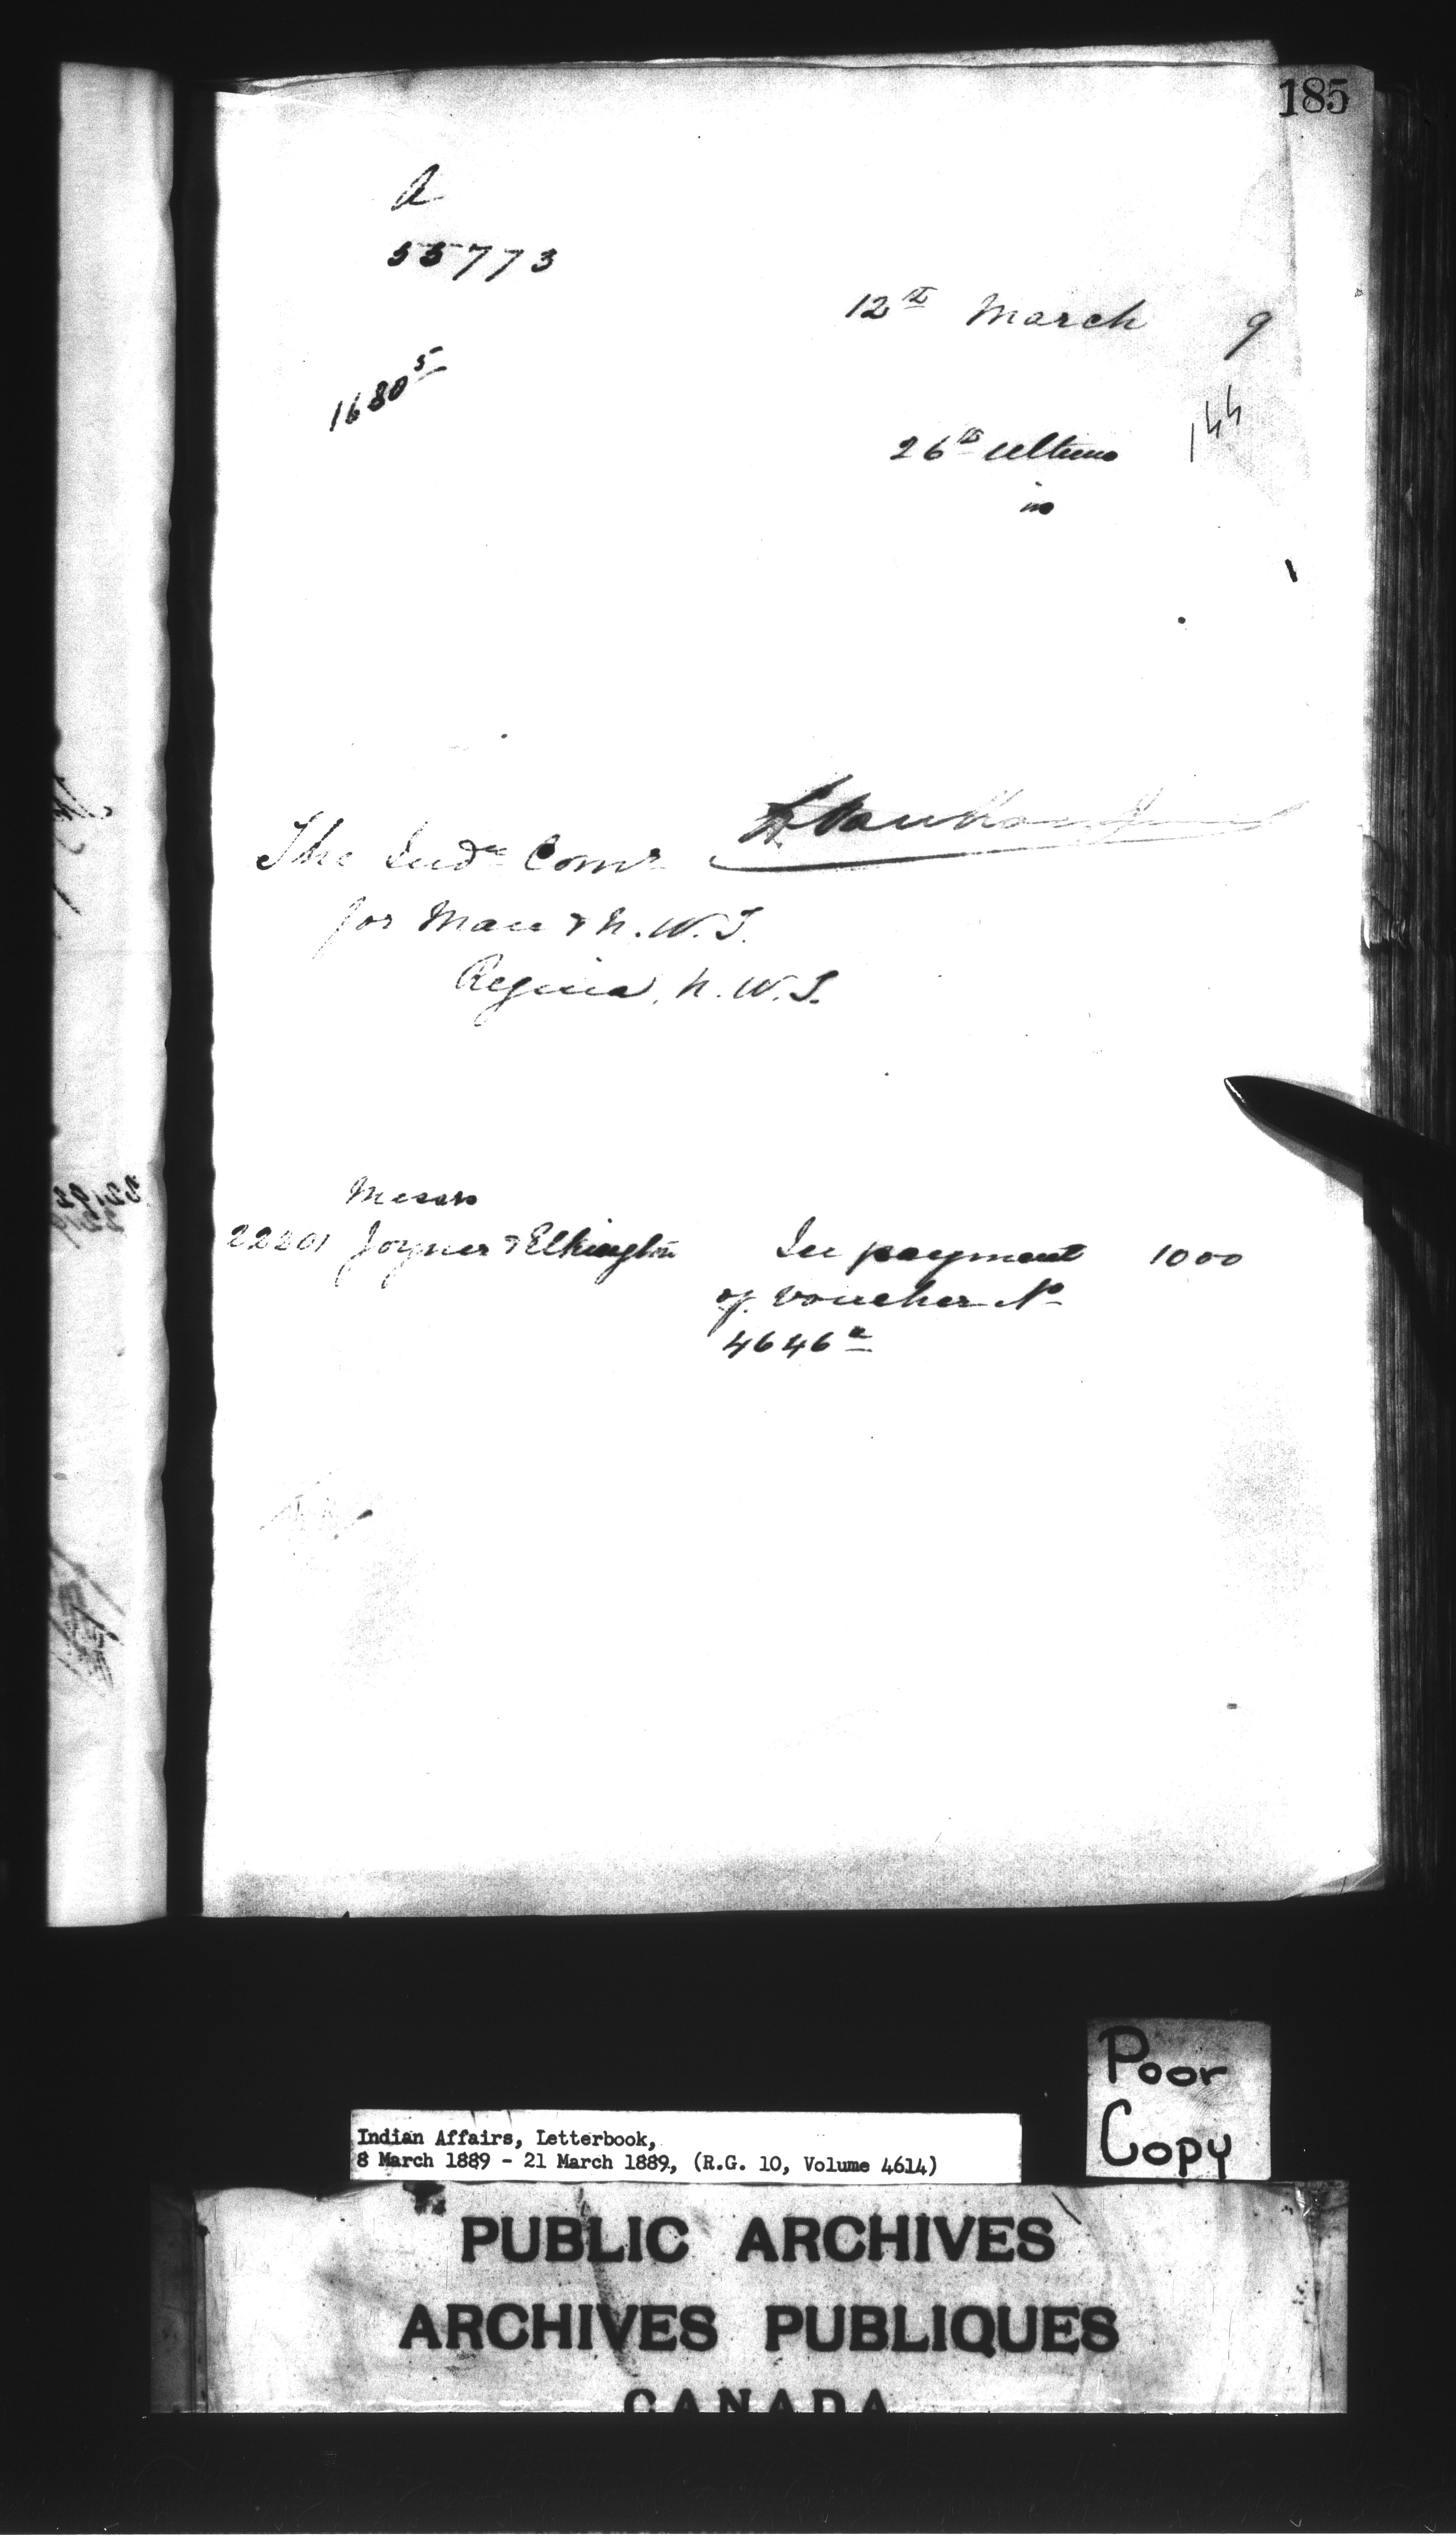 185
A
55773
12th March 9
16805
144
26th Ultimo
in
L. Vankoughnet
The Indn Comr
for Man & N.W.T.
Regina, N.W.T.
Messrs
22201 Joyner & Elkington In payment 1000
of voucher No
4646a
Poor
Copy
Indian Affairs, Letterbook,
8 March 1889 - 21 March 1889, (R.G. 10, Volume 4614)
PUBLIC ARCHIVES
ARCHIVES PUBLIQUES
CANADA